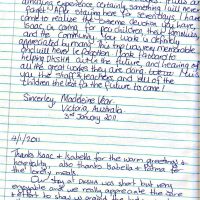 amazing experience, certainly something I will never
forget. After staying here for seven days I have
come to realise the extreme devotion you have,
Isaac, in caring for poor children, their families
and the community. Your work is definitely
appreciated by many. This trip was very memorable
and will never be forgotten. I look forward to
helping DIKSHA with the future, and hearing of
all the great works they are doing. God bless
you, the staff, teachers and all of the
children the best for the future to come!
Sincerely, Madeleine
Victoria, Australia.
3rd January 2011.
4/1/2011
Thanks Isaac & Isabella for the warm greetings &
hospitality, also thanks Isabella & Fatima for
the lovely meals.
Our stay at DIKSHA was short but very
enjoyable and we really appreciate the care
& effort to show us around the kids